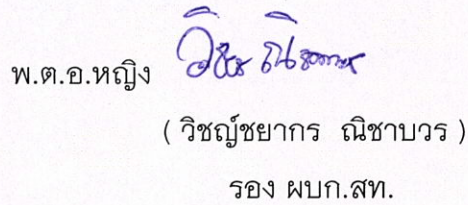 พ.ต.อ.หญิง
( วิชญ์ชยากร ณิชาบวร )
รอง ผบก.สท.